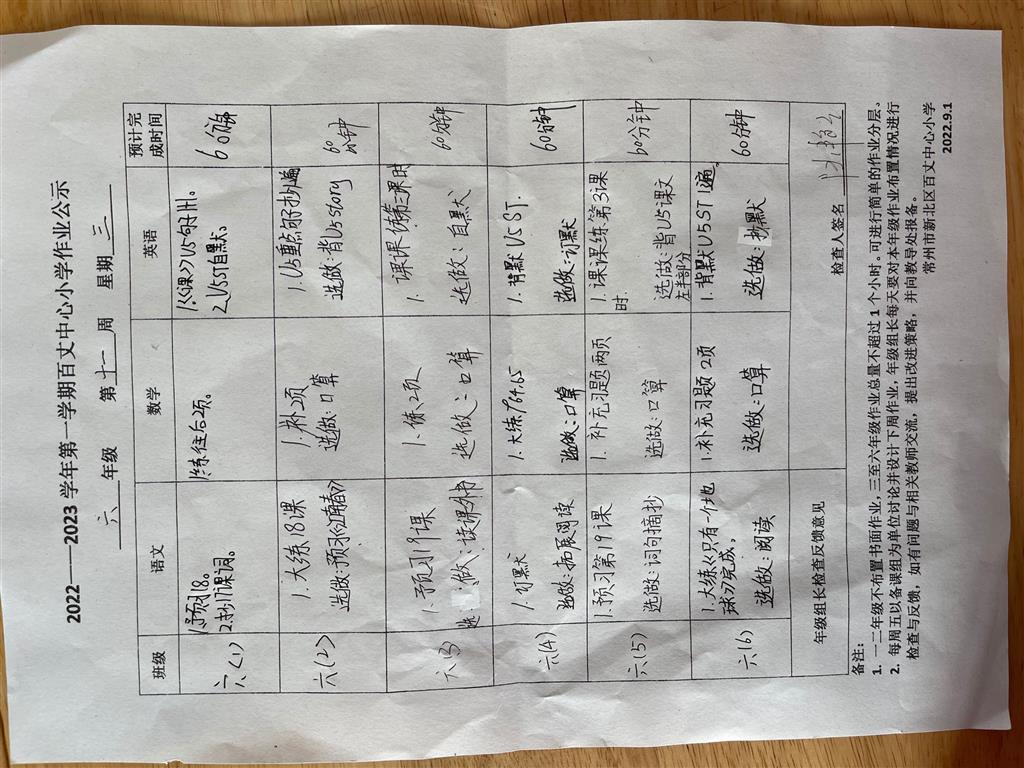 2022——2023 学年第一学期百丈中心小学作业公示
六 年级 第 十一 周 星期 三
班级 语文 数学 英语 预计完成时间
六(1)
1.预习18。
2.抄17课词。
1.练往后2项。
1.《课》U5
2.U5ST自默。
60分钟
六(2)
1.大练18课
选做:预习
1.补2项
选做:口算
1.U5重点句子抄1遍
选做:背U5 story
60分钟
六(3)
1.预习19课
选做:读课外书
1.练2项
选做:口算
1.课课练第三课时
选做:自默
60分钟
六(4)
1.习默
选做:拓展阅读
1.大练P64.65
选做:口算
1.背默U5ST.
选做:习默
60分钟
六(5)
1.预习第19课
选做:词句摘抄
1.补充习题两页
选做:口算
1.课课练第3课时
选做:背U5课文左半部分
60分钟
六(6)
1.大练《只有一个地球》完成,
选做:阅读
1.补充习题2项
选做:口算
1.背默U5ST1遍。
选做:抄默
60分钟
年级组长检查反馈意见 检查人签名
备注:
1. 一二年级不布置书面作业,三至六年级作业总量不超过 1 个小时。可进行简单的作业分层。
2. 每周五以备课组为单位讨论并设计下周作业,年级组长每天要对本年级作业布置情况进行
检查与反馈,如有问题与相关教师交流,提出改进策略,并向教导处报备。
常州市新北区百丈中心小学
2022.9.1